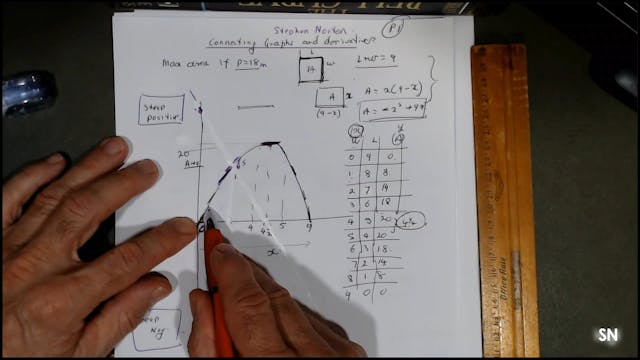 Stephen Norton
P1
Connecting Graphs and derivatives
Max area if P=18m
L
A
w
L+w = 9
A
x
(9-x)
A = x(9-x)
A = -x² + 9x
Steep
positive
20
Area
4
4½
5
9
x
x
L
y
0 9 0
1 8 8
2 7 14
3 6 18
4 5 20
5 4 20
6 3 18
7 2 14
8 1 8
9 0 0
Steep
Neg
SN